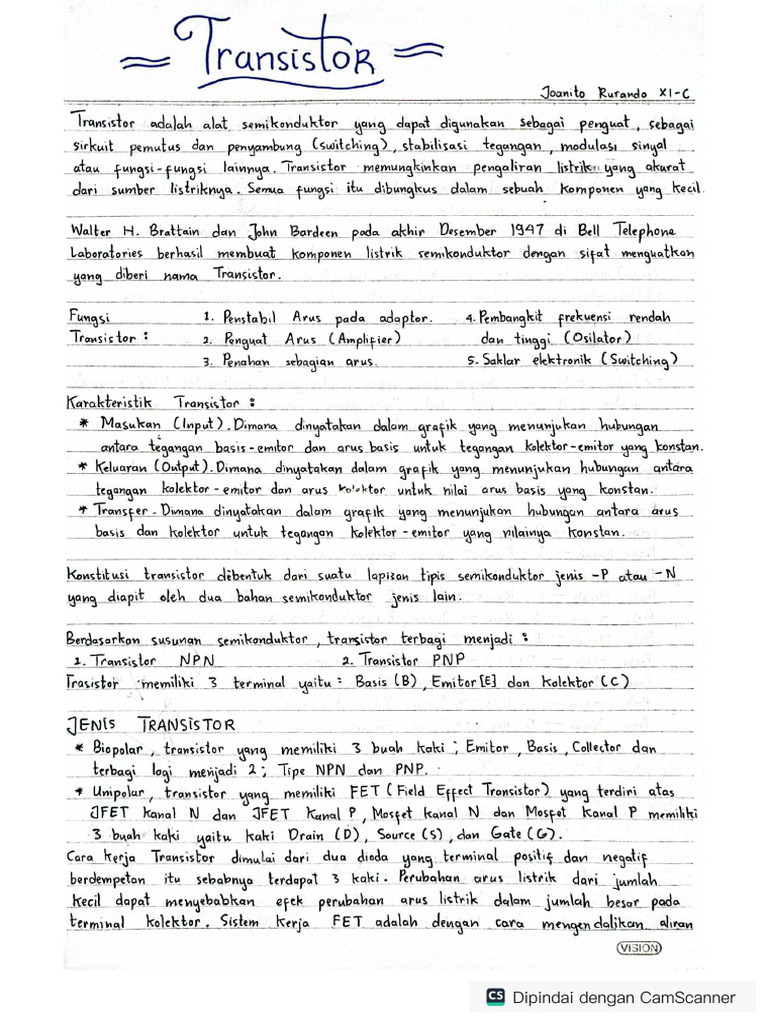 Transistor
Joanito Rurando XI-C
Transistor adalah alat semikonduktor yang dapat digunakan sebagai penguat, sebagai
sirkuit pemutus dan penyambung (switching), stabilisasi tegangan, modulasi sinyal
atau fungsi-fungsi lainnya. Transistor memungkinkan pengaliran listrik yang akurat
dari sumber listriknya. Semua fungsi itu dibungkus dalam sebuah komponen yang kecil.
Walter H. Brattain dan John Bardeen pada akhir Desember 1947 di Bell Telephone
Laboratories berhasil membuat komponen listrik semikonduktor dengan sifat menguatkan
yang diberi nama Transistor.
Fungsi Transistor :
1. Penstabil Arus pada adaptor.
2. Penguat Arus (Amplifier)
3. Penahan sebagian arus.
4. Pembangkit frekuensi rendah
dan tinggi (Osilator)
5. Saklar elektronik (Switching)
Karakteristik Transistor :
* Masukan (Input). Dimana dinyatakan dalam grafik yang menunjukan hubungan
antara tegangan basis-emitor dan arus basis untuk tegangan kolektor-emitor yang konstan.
* Keluaran (Output). Dimana dinyatakan dalam grafik yang menunjukan hubungan antara
tegangan kolektor-emitor dan arus kolektor untuk nilai arus basis yang konstan.
* Transfer. Dimana dinyatakan dalam grafik yang menunjukan hubungan antara arus
basis dan kolektor untuk tegangan kolektor-emitor yang nilainya konstan.
Konstitusi transistor dibentuk dari suatu lapisan tipis semikonduktor jenis -P atau -N
yang diapit oleh dua bahan semikonduktor jenis lain.
Berdasarkan susunan semikonduktor, transistor terbagi menjadi :
1. Transistor NPN 2. Transistor PNP
Trasistor memiliki 3 terminal yaitu : Basis (B), Emitor [E] dan Kolektor (C)
JENIS TRANSISTOR
* Biopolar, transistor yang memiliki 3 buah kaki ; Emitor, Basis, Collector dan
terbagi lagi menjadi 2 ; Tipe NPN dan PNP.
* Unipolar, transistor yang memiliki FET (Field Effect Transistor) yang terdiri atas
JFET Kanal N dan JFET Kanal P, Mosfet kanal N dan Mosfet Kanal P memiliki
3 buah kaki yaitu kaki Drain (D), Source (S), dan Gate (G).
Cara kerja Transistor dimulai dari dua dioda yang terminal positif dan negatif
berdempetan itu sebabnya terdapat 3 kaki. Perubahan arus listrik dari jumlah
kecil dapat menyebabkan efek perubahan arus listrik dalam jumlah besar pada
terminal kolektor. Sistem kerja FET adalah dengan cara mengendalikan aliran
VISION
CS Dipindai dengan CamScanner